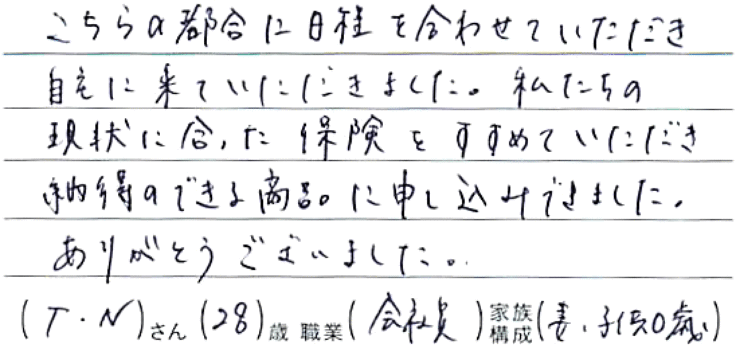 こちらの都合に日程を合わせていただき
自宅に来ていただきました。私たちの
現状に合った保険をすすめていただき
納得のできる商品に申し込みできました。
ありがとうございました。
(T・N)さん(28)歳 職業(会社員)家族構成(妻・子供0歳)